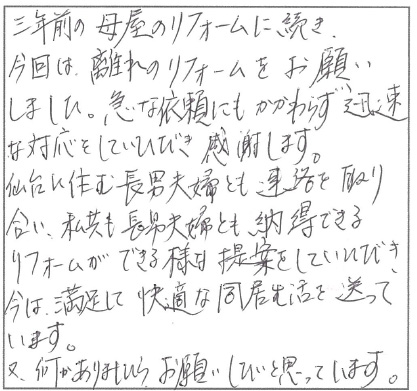 三年前の母屋のリフォームに続き、
今回は、離れのリフォームをお願い
しました。急な依頼にもかかわらず迅速
な対応をしていただき感謝します。
仙台に住む長男夫婦とも連絡を取り
合い、私共も長男夫婦とも納得できる
リフォームができる様な提案をしていただき、
今は、満足して快適な同居生活を送って
います。
又、何かありましたらお願いしたいと思っています。